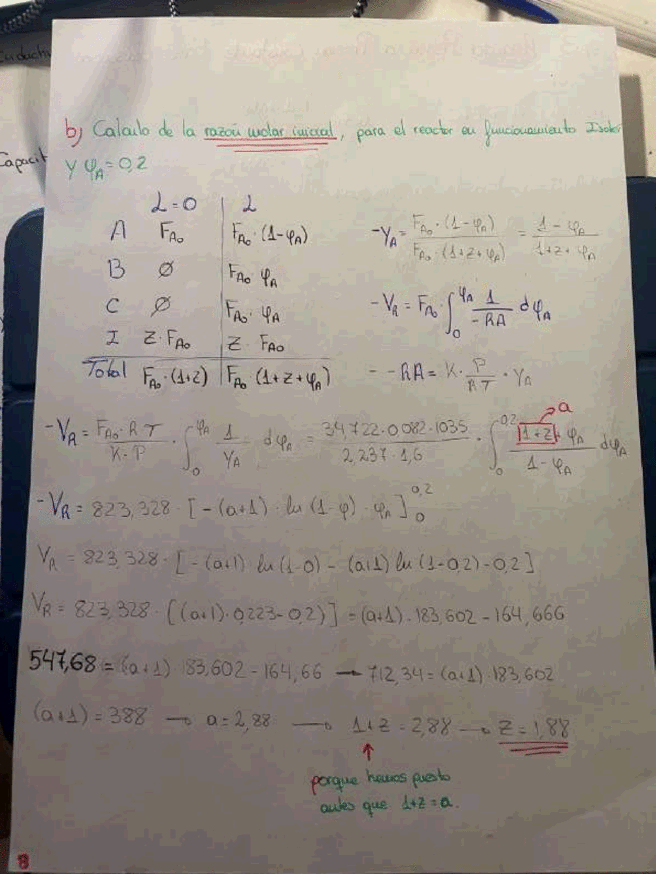 b) Calculo de la razón molar inicial, para el reactor en funcionamiento
y φA = 0,2
L=0 | L
A FA₀ | FA₀·(1-φA)
B ∅ | FA₀ φA
C ∅ | FA₀·φA
I Z·FA₀ | Z·FA₀
Total FA₀·(1+Z) | FA₀·(1+Z+φA)
-YA = FA₀·(1-φA) / FA₀·(1+Z+φA) = 1-φA / 1+Z+φA
-VR = FA₀·∫₀^φA 1/-RA dφA
- -RA = K·P/RT·YA
-VR = FA₀·RT / K·P · ∫₀^φA 1/YA dφA = 34,722·0,082·1035 / 2,237·1,6 · ∫₀^0,2 1+Z+φA / 1-φA dφA
a
-VR = 823,328·[-(a+1)·ln(1-φ)·φA]₀^0,2
VR = 823,328·[-(a+1) ln(1-0) - (a+1) ln(1-0,2)-0,2]
VR = 823,328·[(a+1)·0,223-0,2)] = (a+1)·183,602 - 164,666
547,68 = (a+1) 183,602 - 164,66 → 712,34 = (a+1)·183,602
(a+1) = 388 → a = 2,88 → 1+Z = 2,88 → Z = 1,88
↑
porque hemos puesto
antes que 1+Z=a.
8
Capacit